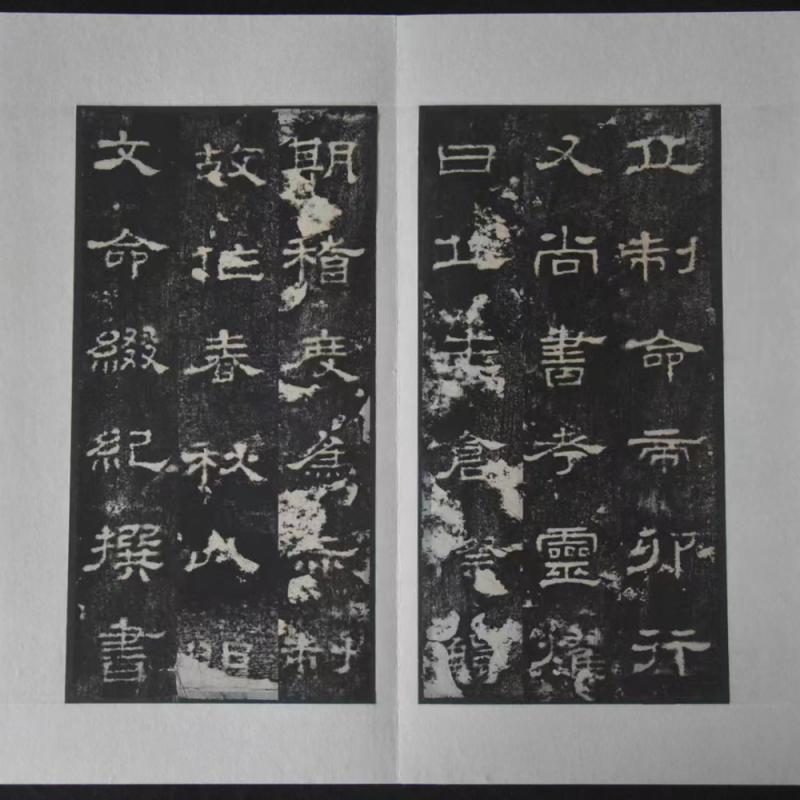 丘制命帝卯行
又尚書考靈燿
曰丘生倉際觸
期稽度爲赤制
故作春秋以明
文命綴紀撰書